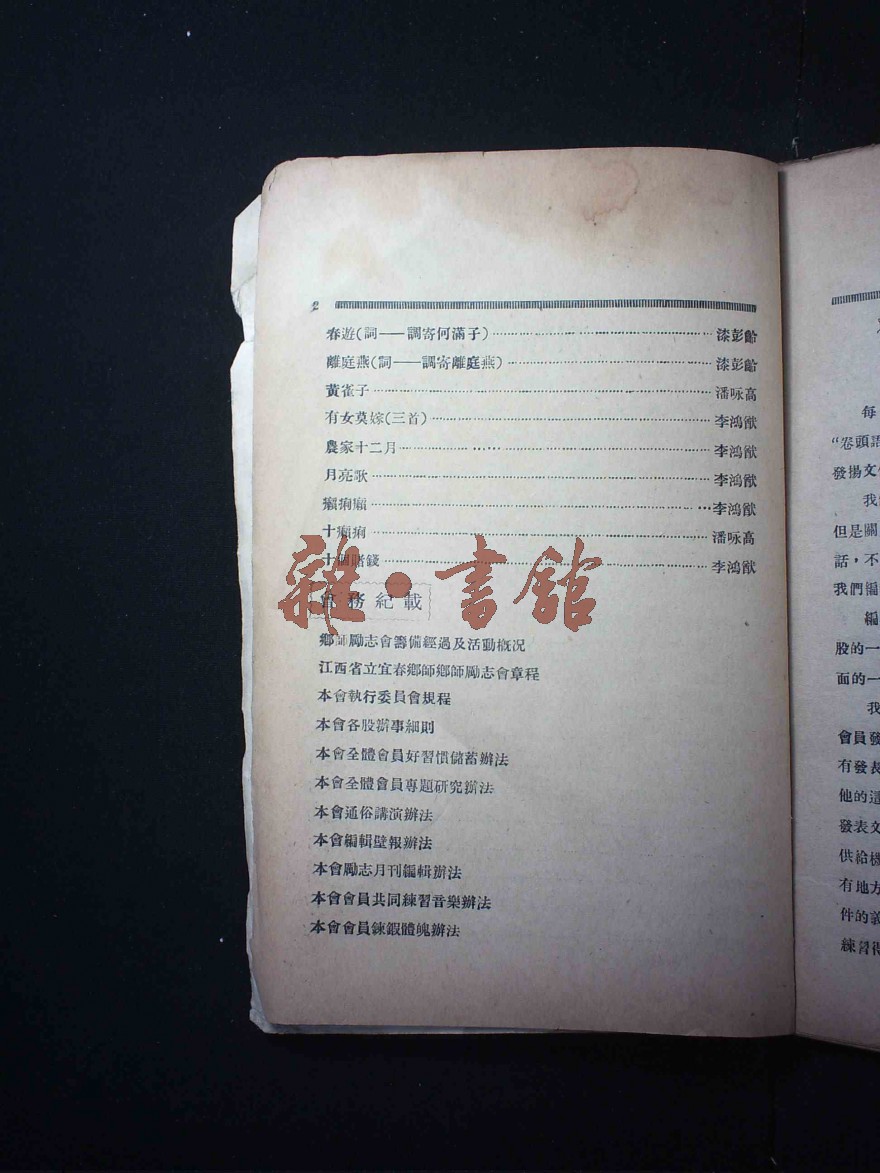 2
春遊(詞——調寄何滿子)……漆彭齡
離庭燕(詞——調寄離庭燕)……漆彭齡
黃雀子……潘咏高
有女莫嫁(三首)……李鴻猷
農家十二月……李鴻猷
月亮歌……李鴻猷
癩痢願……李鴻猷
十癩痢……潘咏高
十個賭錢……李鴻猷
雜·書館
會務紀載
鄉師勵志會籌備經過及活動概況
江西省立宜春鄉師鄉師勵志會章程
本會執行委員會規程
本會各股辦事細則
本會全體會員好習慣儲蓄辦法
本會全體會員專題研究辦法
本會通俗講演辦法
本會編輯壁報辦法
本會勵志月刊編輯辦法
本會會員共同練習音樂辦法
本會會員鍊鍜體魄辦法
每
“卷頭語
發揚文
我
但是關
話，不
我們編
編
股的一
面的一
我
會員發
有發表
他的這
發表文
供給機
有地方
件的敦
練習得